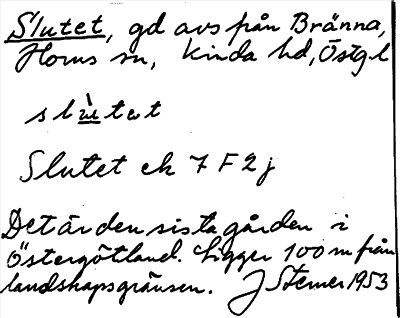 Slutet, gd avs från Bränna,
Horns sn, Kinda hd, Östg. l
slù̲tet
Slutet ek 7 F 2 j
Det är den sista gården i
Östergötland. Ligger 100 m från
landskapsgränsen. J Sterner 1953